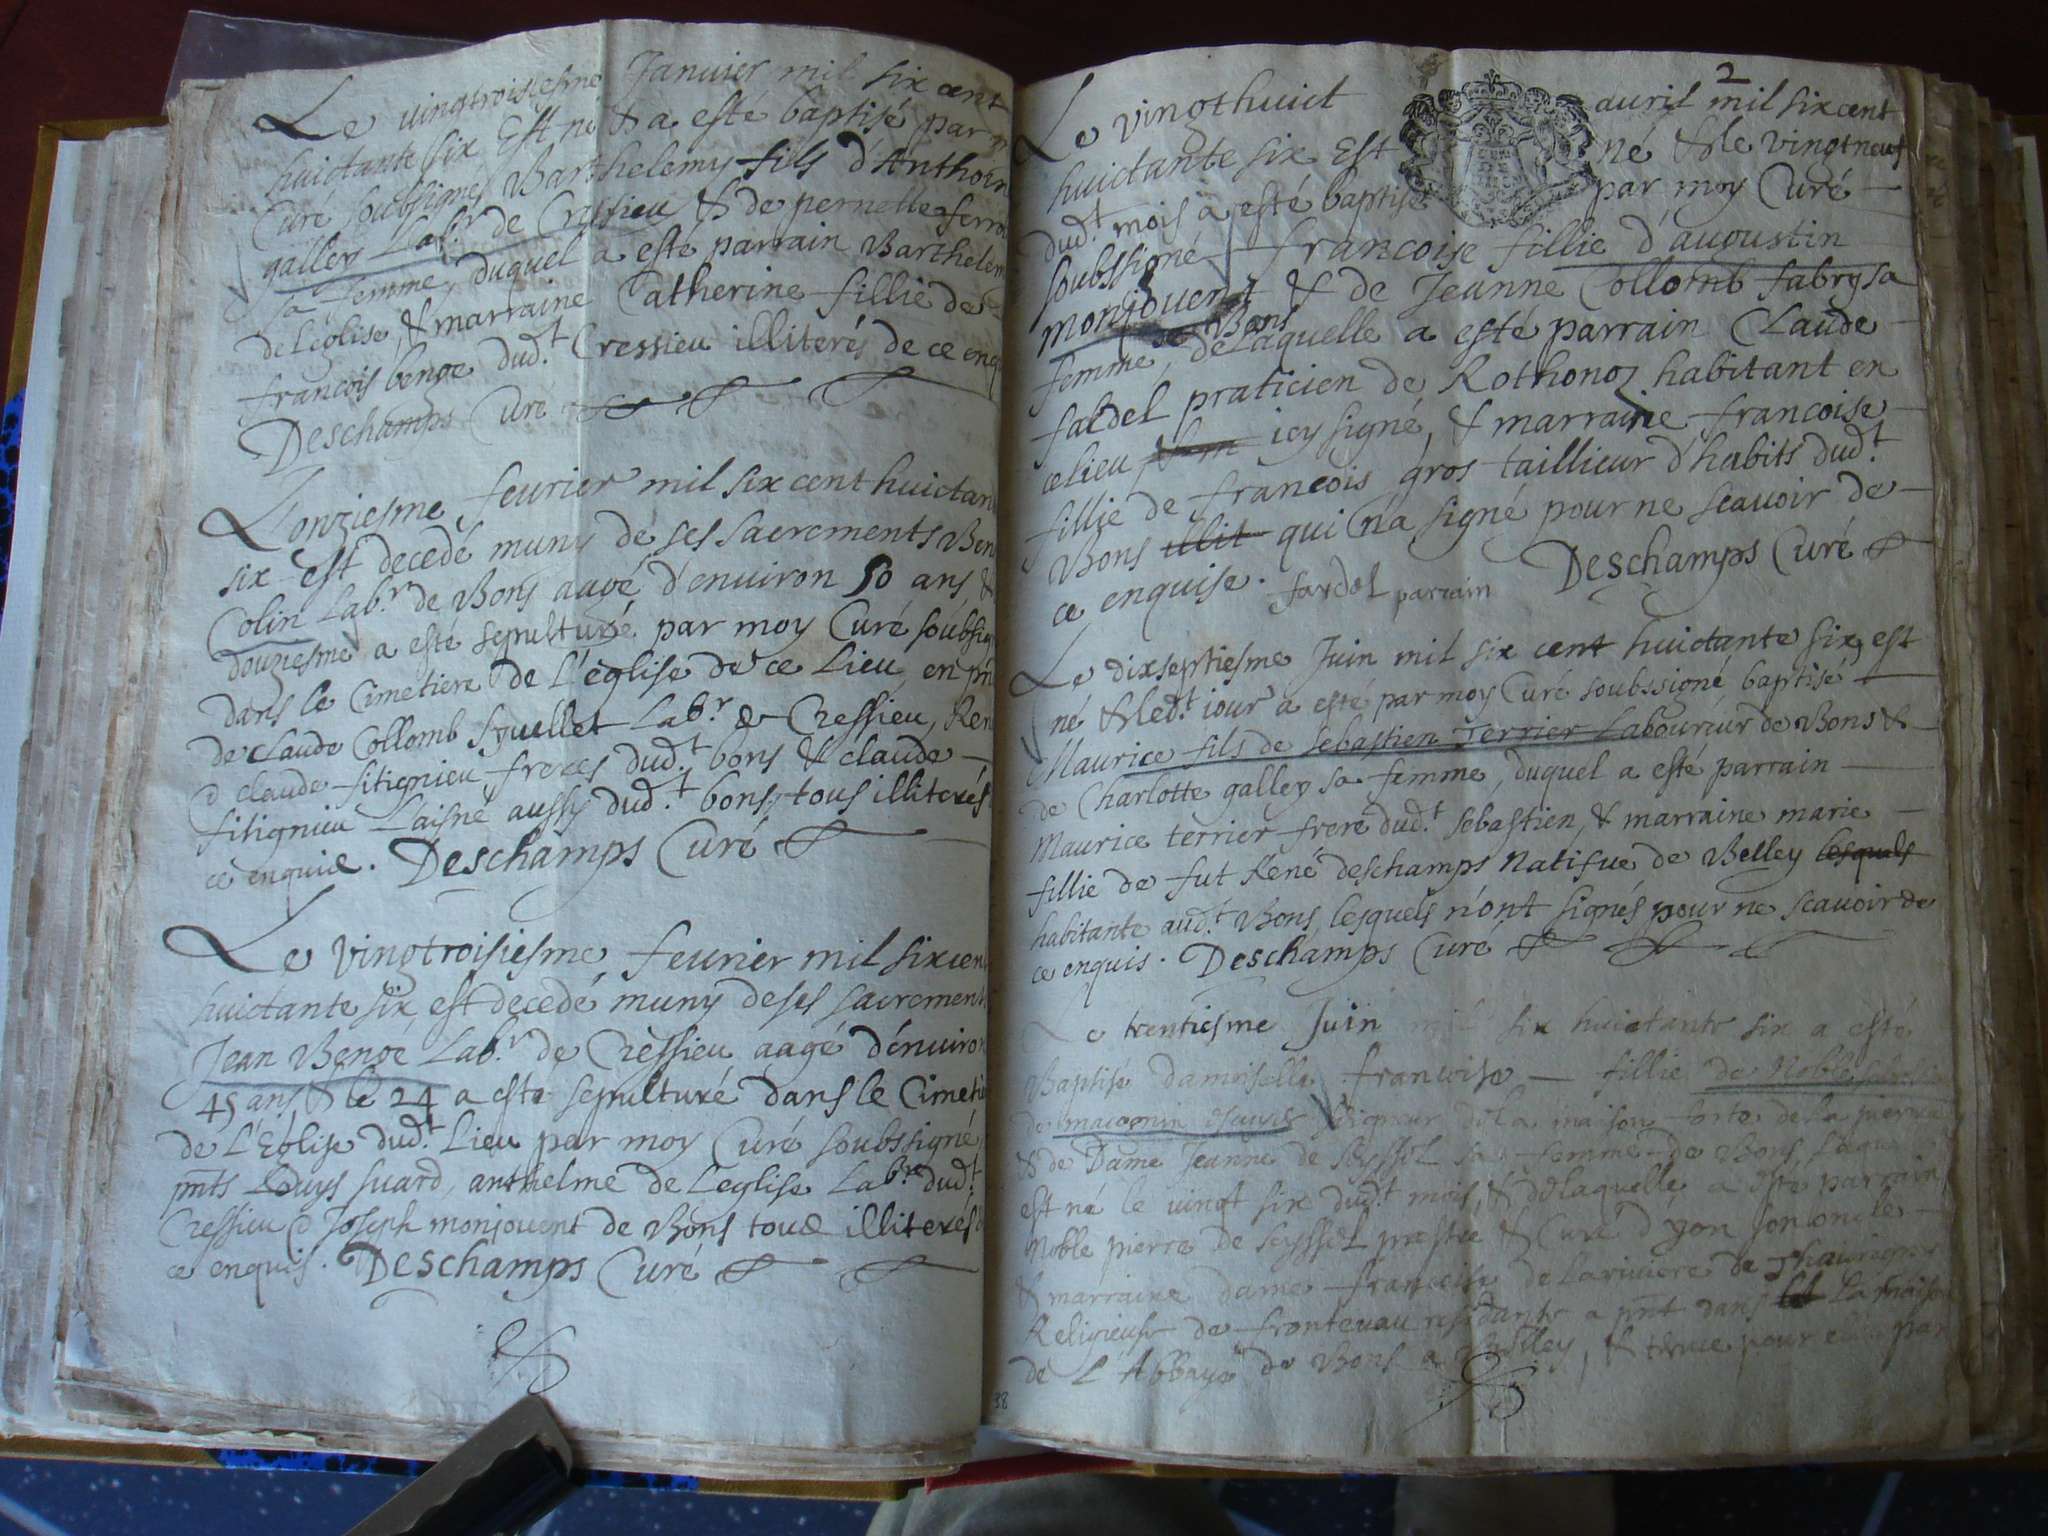 Le vingtroisiesme Janvier mil six cent
huictante six Est né & a esté baptisé par m
Curé soubsigné Barthelemy fils d'Anthoin
galley Lab.r de Cressieu & de pernette ferro
sa femme, duquel a esté parrain Barthelem
de L'eglise, & marraine Catherine fillie de
francois benoe dud.t Cressieu illiterés de ce enq
Deschamps Curé
L'onziesme feurier mil six cent huictan
six est decedé muny de ses sacrements Ben
Colin Lab.r de Bons aagé d'enuiron 50 ans, &
douziesme a esté sepulturé par moy Curé soubsig
dans le Cimetiere de L'eglise de ce Lieu en pn
de claude Collomb Lab.r de Cressieu, Rene
@ claude fitignieu freres dud.t bons & claude
fitignieu Laisné aussy dud.t bons, tous illiterés
ce enquis. Deschamps Curé
Le vingtroisiesme feurier mil six cen
huictante six, est decedé muny de ses sacrement
Jean Benoe Lab.r de Cressieu aagé d'enuiron
45 ans & le 24 a esté sepulturé dans le Cimeti
de L'Eglise dud.t Lieu par moy Curé soubssigné,
pnts Louys suard, anthelme de Leglise Lab.rs dud.t
Cressieu @ Joseph monjouent de Bons tous illiterés
ce enquis. Deschamps Curé
38
2
Le vingt huict auril mil six cent
huictante six Est né & le vingt neuf
dud.t mois a esté baptisé par moy Curé
soubssigné francoise fillie d'augustin
monjouent & de Jeanne Collomb fabry sa
de Bons
femme, de Laquelle a esté parrain Claude
fardel praticien de Rothonoz habitant en
ce lieu, icy signé, & marraine francoise
fillie de francois gros taillieur d'habits dud.t
Bons illit qui n'a signé pour ne scauoir de
ce enquise. fardel parrain Deschamps Curé
Le dixseptiesme Juin mil six cent huictante six, est
né & led.t iour a esté par moy Curé soubssigné baptisé
Maurice fils de sebastien Terrier Laboureur de Bons &
de Charlotte galley sa femme, duquel a esté parrain
Maurice terrier frere dud.t sebastien, & marraine marie
fillie de fut René deschamps Natifue de Belley lesquels
habitante aud.t Bons, lesquels n'ont signés pour ne scauoir de
ce enquis. Deschamps Curé
Le trentiesme Juin mil six huictante six a esté
Baptisé damoiselle francoise fillie de Noble
de seigneur de La maison forte de La pierre
& de Dame Jeanne de seyssel sa femme de Bons
est né le vingt six dud.t mois, & de laquelle a esté parrain
Noble pierre de seyssel prestre & Curé d'yon son oncle
& marraine dame francoise de La riuiere de
Religieuse de fronteuau residante a pnt dans La maison
de L'Abbaye de Bons a Belley, & tenue pour elle par